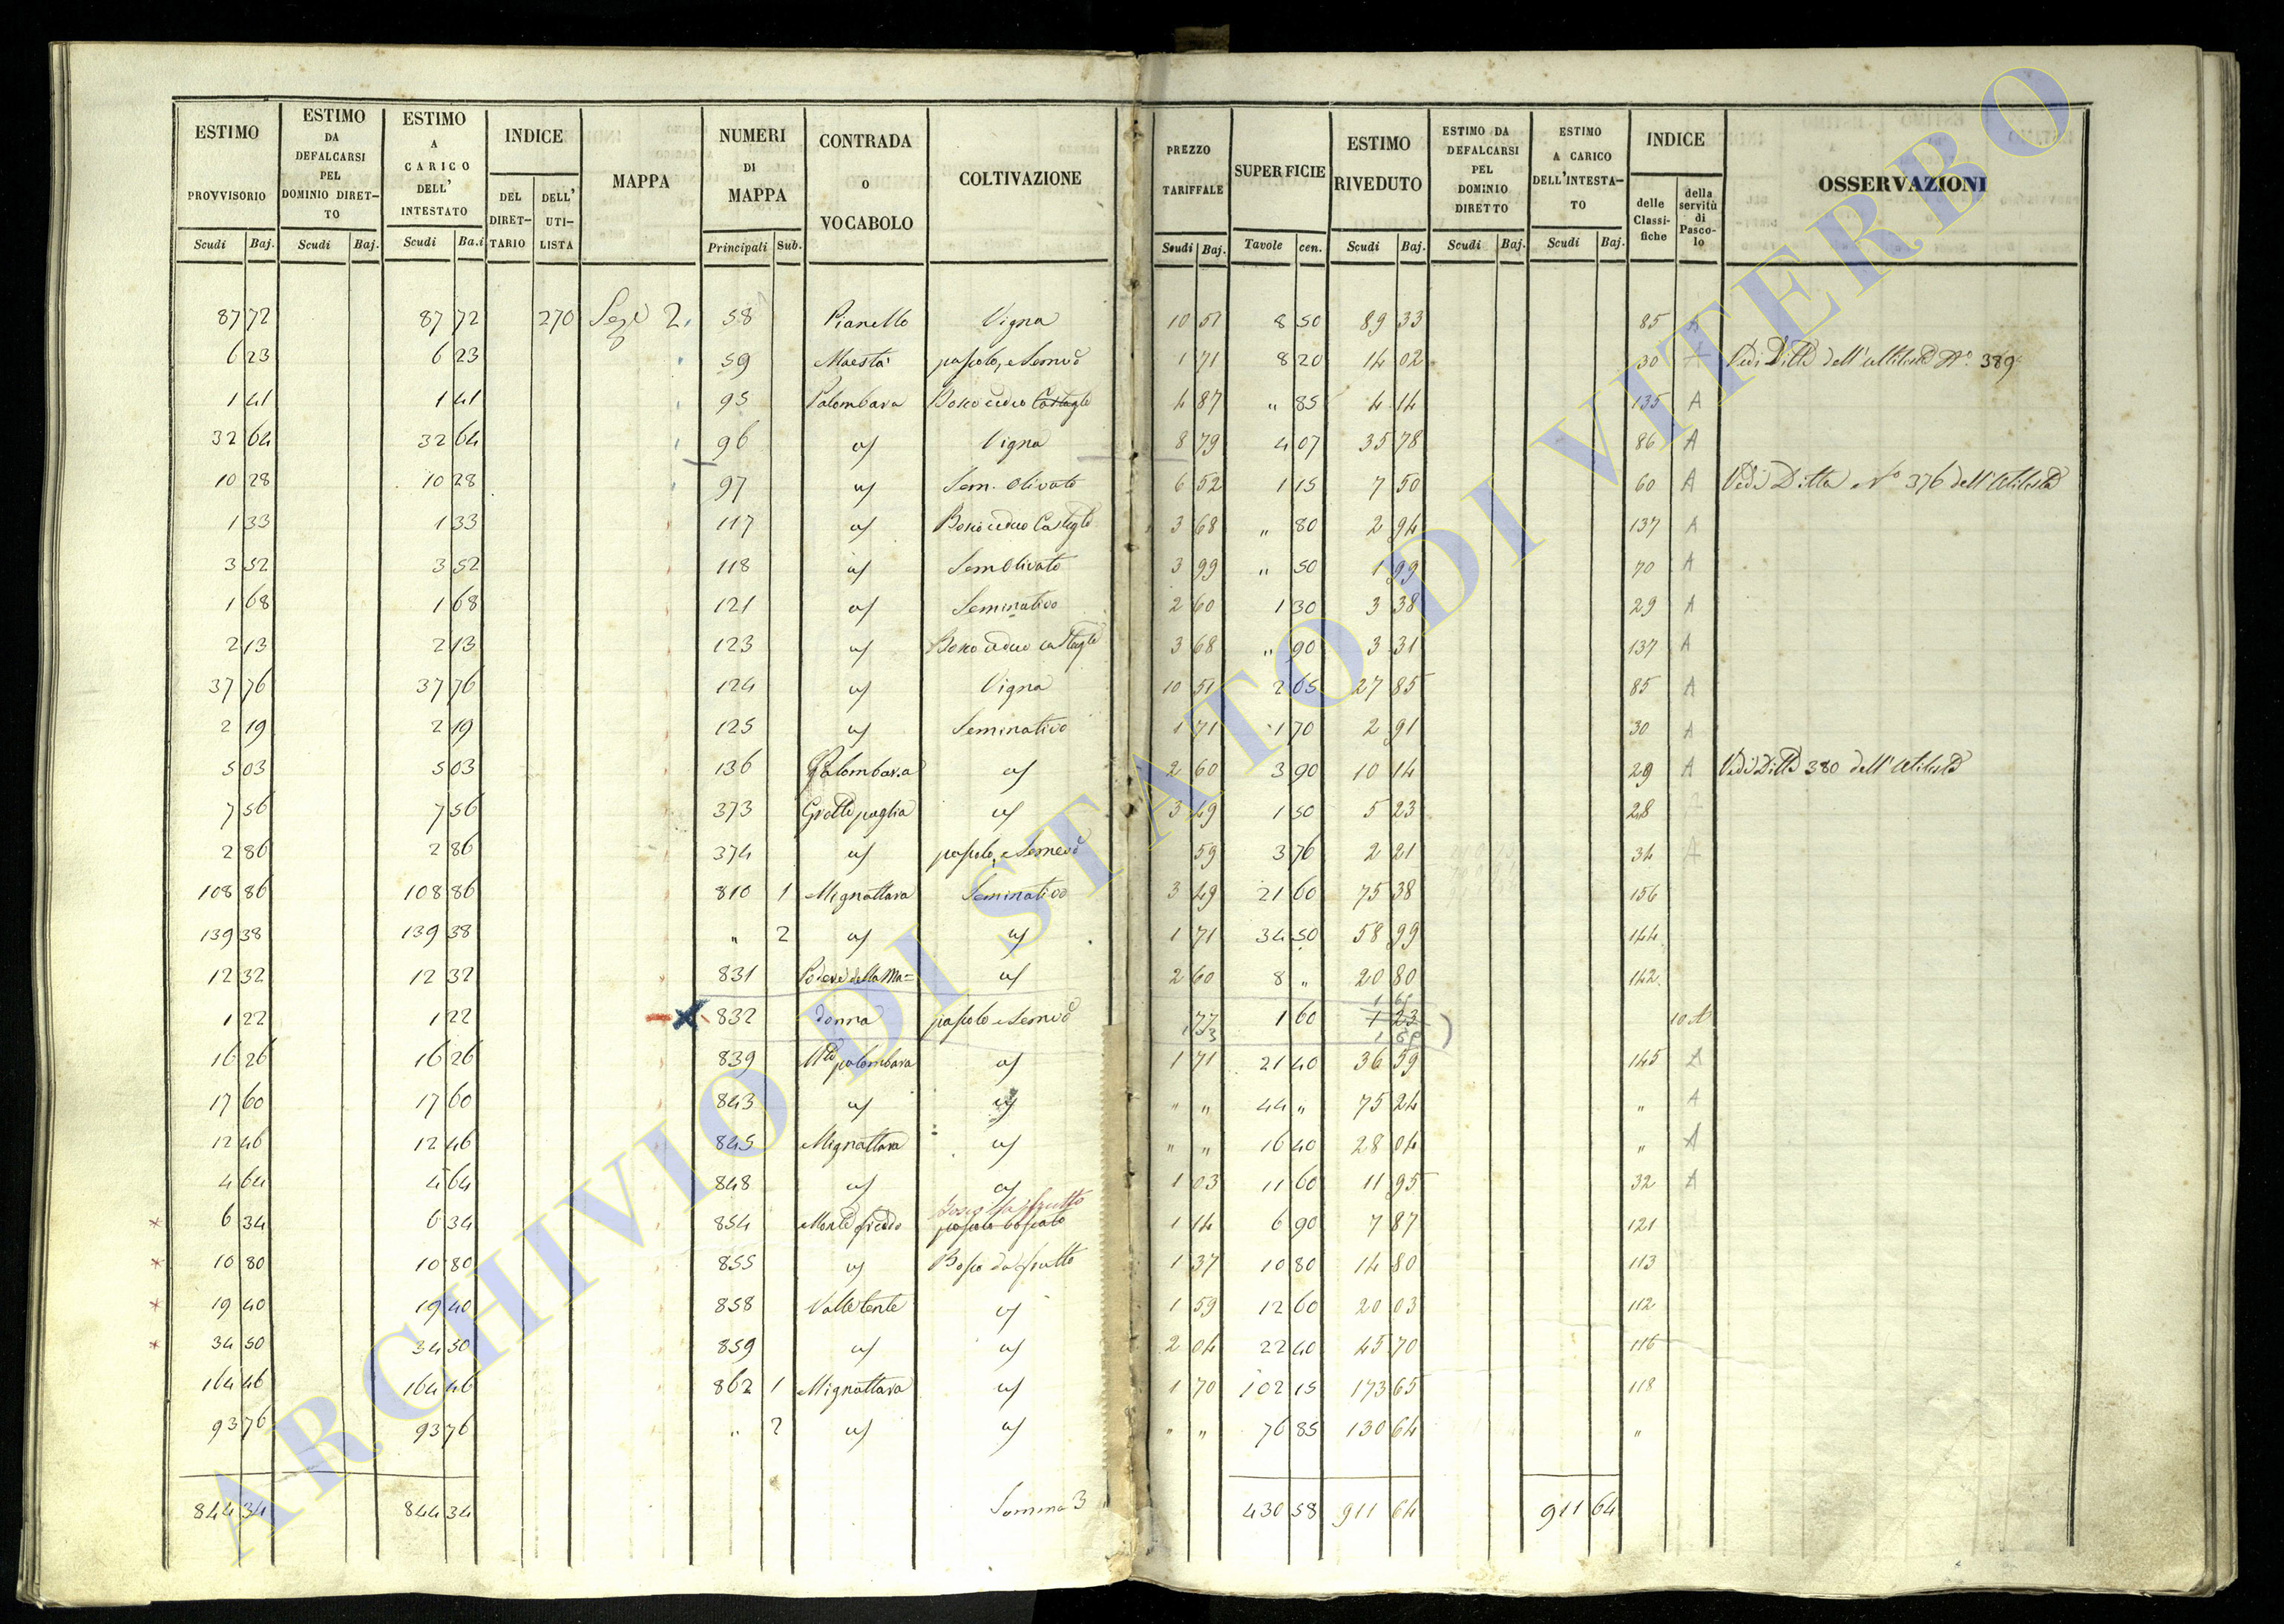 ESTIMO PROVVISORIO Scudi Baj.
ESTIMO DA DEFALCARSI PEL DOMINIO DIRETTO Scudi Baj.
ESTIMO A CARICO DELL' INTESTATO Scudi Ba.i
INDICE DEL DIRETTARIO DELL' UTILISTA
MAPPA
NUMERI DI MAPPA Principali Sub.
CONTRADA O VOCABOLO
COLTIVAZIONE
PREZZO TARIFFALE Scudi Baj.
SUPERFICIE Tavole cen.
ESTIMO RIVEDUTO Scudi Baj.
ESTIMO DA DEFALCARSI PEL DOMINIO DIRETTO Scudi Baj.
ESTIMO A CARICO DELL'INTESTATO Scudi Baj.
INDICE delle Classifiche della servitù di Pascolo
OSSERVAZIONI
87 72 87 72 270 Sez. 2. 58 Pianello Vigna 10 51 8 50 89 33 85 A
6 23 6 23 59 Maestà pascolo, e 1 71 8 20 14 02 30 A Vedi Ditta dell' Utilista N° 389
1 41 1 41 95 Palombara Bosco ceduo Castag.to 4 87 " 85 4 14 135 A
32 64 32 64 96 a/ Vigna 8 79 4 07 35 78 86 A
10 28 10 28 97 a/ Sem. Olivato 6 52 1 15 7 50 60 A Vedi Ditta N° 376 dell' Utilista
1 33 1 33 117 a/ Bosco ceduo Castag.to 3 68 " 80 2 94 137 A
3 52 3 52 118 a/ Sem Olivato 3 99 " 50 1 99 70 A
1 68 1 68 121 a/ Seminativo 2 60 1 30 3 38 29 A
2 13 2 13 123 a/ Bosco ceduo castag.to 3 68 " 90 3 31 137 A
37 76 37 76 124 a/ Vigna 10 51 2 65 27 85 85 A
2 19 2 19 125 a/ Seminativo 1 71 1 70 2 91 30 A
5 03 5 03 136 Palombara a/ 2 60 3 90 10 14 29 A Vedi Ditta 380 dell' Utilista
7 56 7 56 373 Grotte paglia a/ 3 49 1 50 5 23 28
2 86 2 86 374 a/ pascolo, e 59 3 76 2 21 34 A
108 86 108 86 810 1 Mignattara Seminativo 3 49 21 60 75 38 156
139 38 139 38 " 2 a/ a/ 1 71 34 50 58 99 144
12 32 12 32 831 Podere della Ma= a/ 2 60 8 " 20 80 142
1 22 1 22 832 donna pascolo e 77 1 60 1 23 10 A
16 26 16 26 839 M.te palombara a/ 1 71 21 40 36 59 145 A
17 60 17 60 843 a/ a/ " " 44 " 75 24 " A
12 46 12 46 845 Mignattara a/ " " 16 40 28 04 " A
4 64 4 64 848 a/ a/ 1 03 11 60 11 95 32 A
Bosco da frutto
6 34 6 34 854 Monte pascolo boscato 1 14 6 90 7 87 121
10 80 10 80 855 a/ Bosco da frutto 1 37 10 80 14 80 113
19 40 19 40 858 Valle lente a/ 1 59 12 60 20 03 112
34 50 34 50 859 a/ a/ 2 04 22 40 45 70 116
164 46 164 46 862 1 Mignattara a/ 1 70 102 15 173 65 118
93 76 93 76 " 2 a/ a/ " " 76 85 130 64 "
844 34 844 34 Somma 3 430 58 911 64 911 64
ARCHIVIO DI STATO DI VITERBO